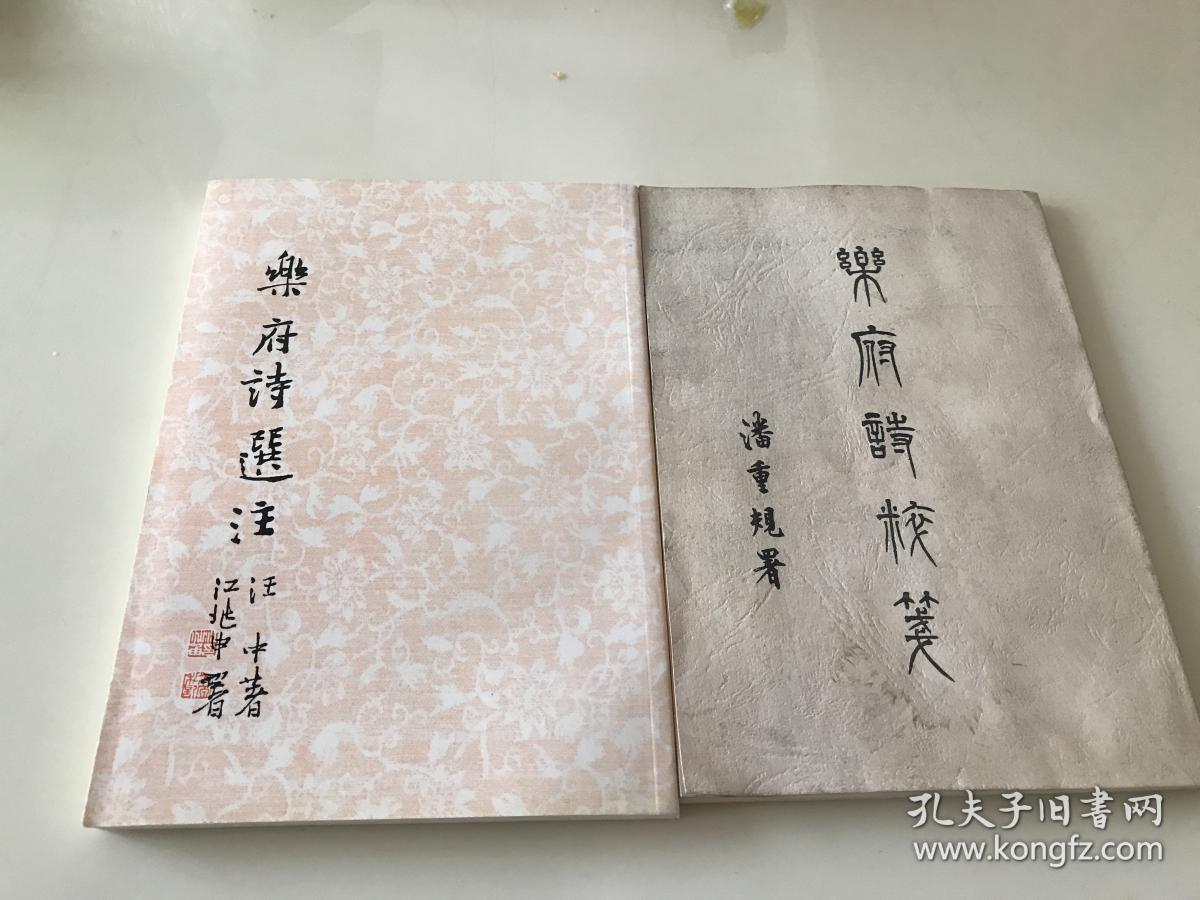 樂府詩選注
汪中著
江兆申署
樂府詩粹箋
潘重規署
孔夫子旧书网
www.kongfz.com